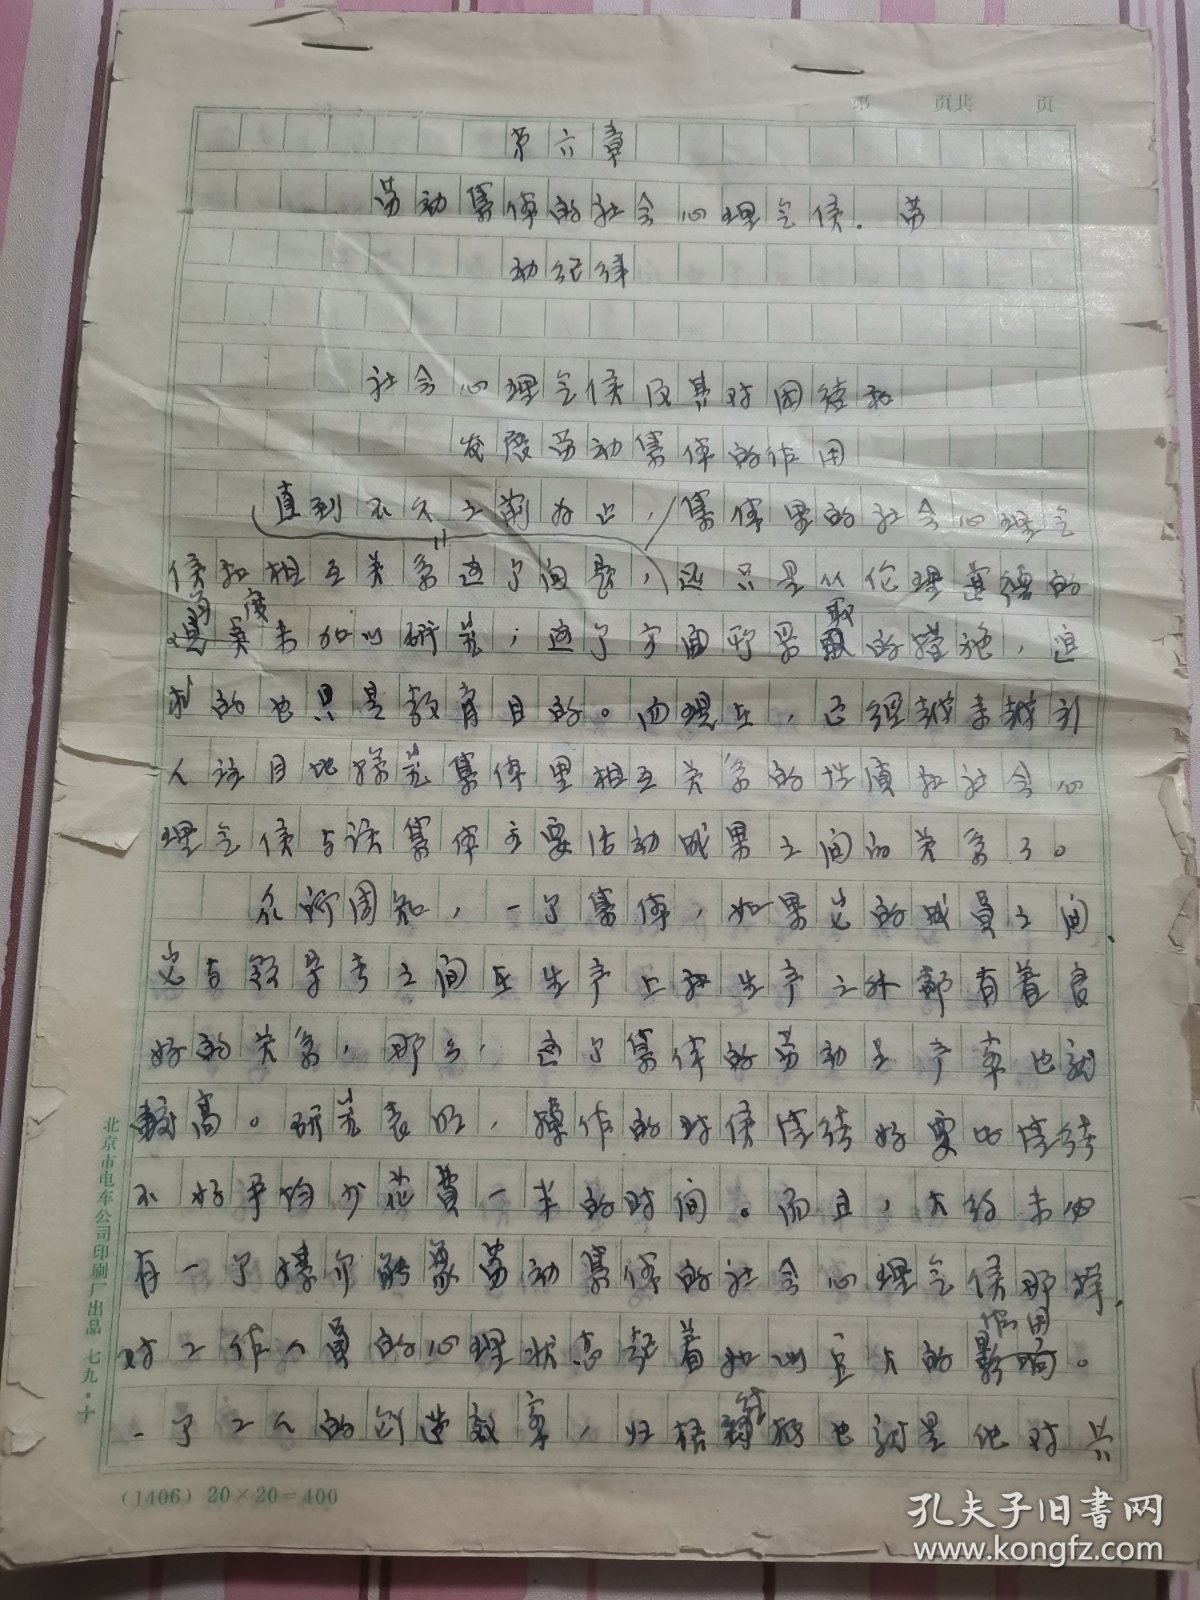 第 页共 页
第六章
劳动集体的社会心理气候.劳
动纪律
社会心理气候及其对团结和
发展劳动集体的作用
直到不久之前为止,集体里的社会心理气
候和相互关系这个问题,还只是从伦理道德的
角度来加以研究;这个方面所采取的措施,追
求的也只是教育目的。而现在,已经越来越引
人注目地探究集体里相互关系的性质和社会心
理气候与该集体主要活动成果之间的关系了。
众所周知,一个集体,如果它的成员之间、
它与领导者之间在生产上和生产之外都有着良
好的关系,那么,这个集体的劳动生产率也就
较高。研究表明,操作的时候情绪好要比情绪
不好平均少花费一半的时间。而且,大约未必
有一个因素能象劳动集体的社会心理气候那样,
对工作人员的心理状态起着如此巨大的作用。
一个工人的创造效率,归根结柢也就是他对共
北京市电车公司印刷厂出品 七九·十
(1406) 20×20=400
孔夫子旧书网
www.kongfz.com